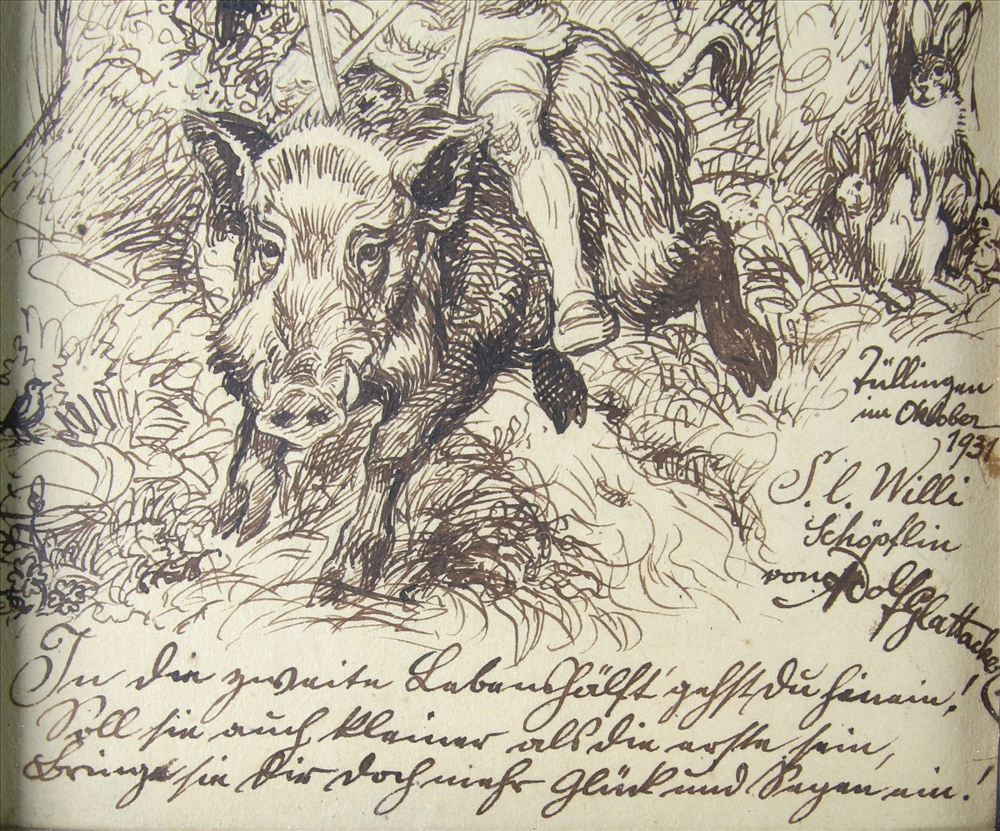 Tüllingen
im Oktober
1931
S. l. Willi
Schöpflin
von Adolf Glattacker
In die zweite Lebenshälft' gehst du hinein!
Soll sie auch kleiner als die erste sein,
Bringe sie dir doch mehr Glück und Segen ein!